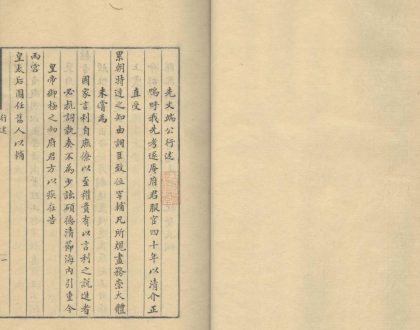 先文端公行述
嗚呼我先考遂庵府君服官四十年以清介正
直受
累朝特達之知由詞臣致位宰輔凡所規畫務崇大體
未嘗為
國家言利自庶僚以至權貴有以言利之說進者
必抗詞敷奏不為少詘碩德清節海內引重今
皇帝御極之初府君方以疾在告
兩宮
皇太后圖任舊人以輔
行述
一